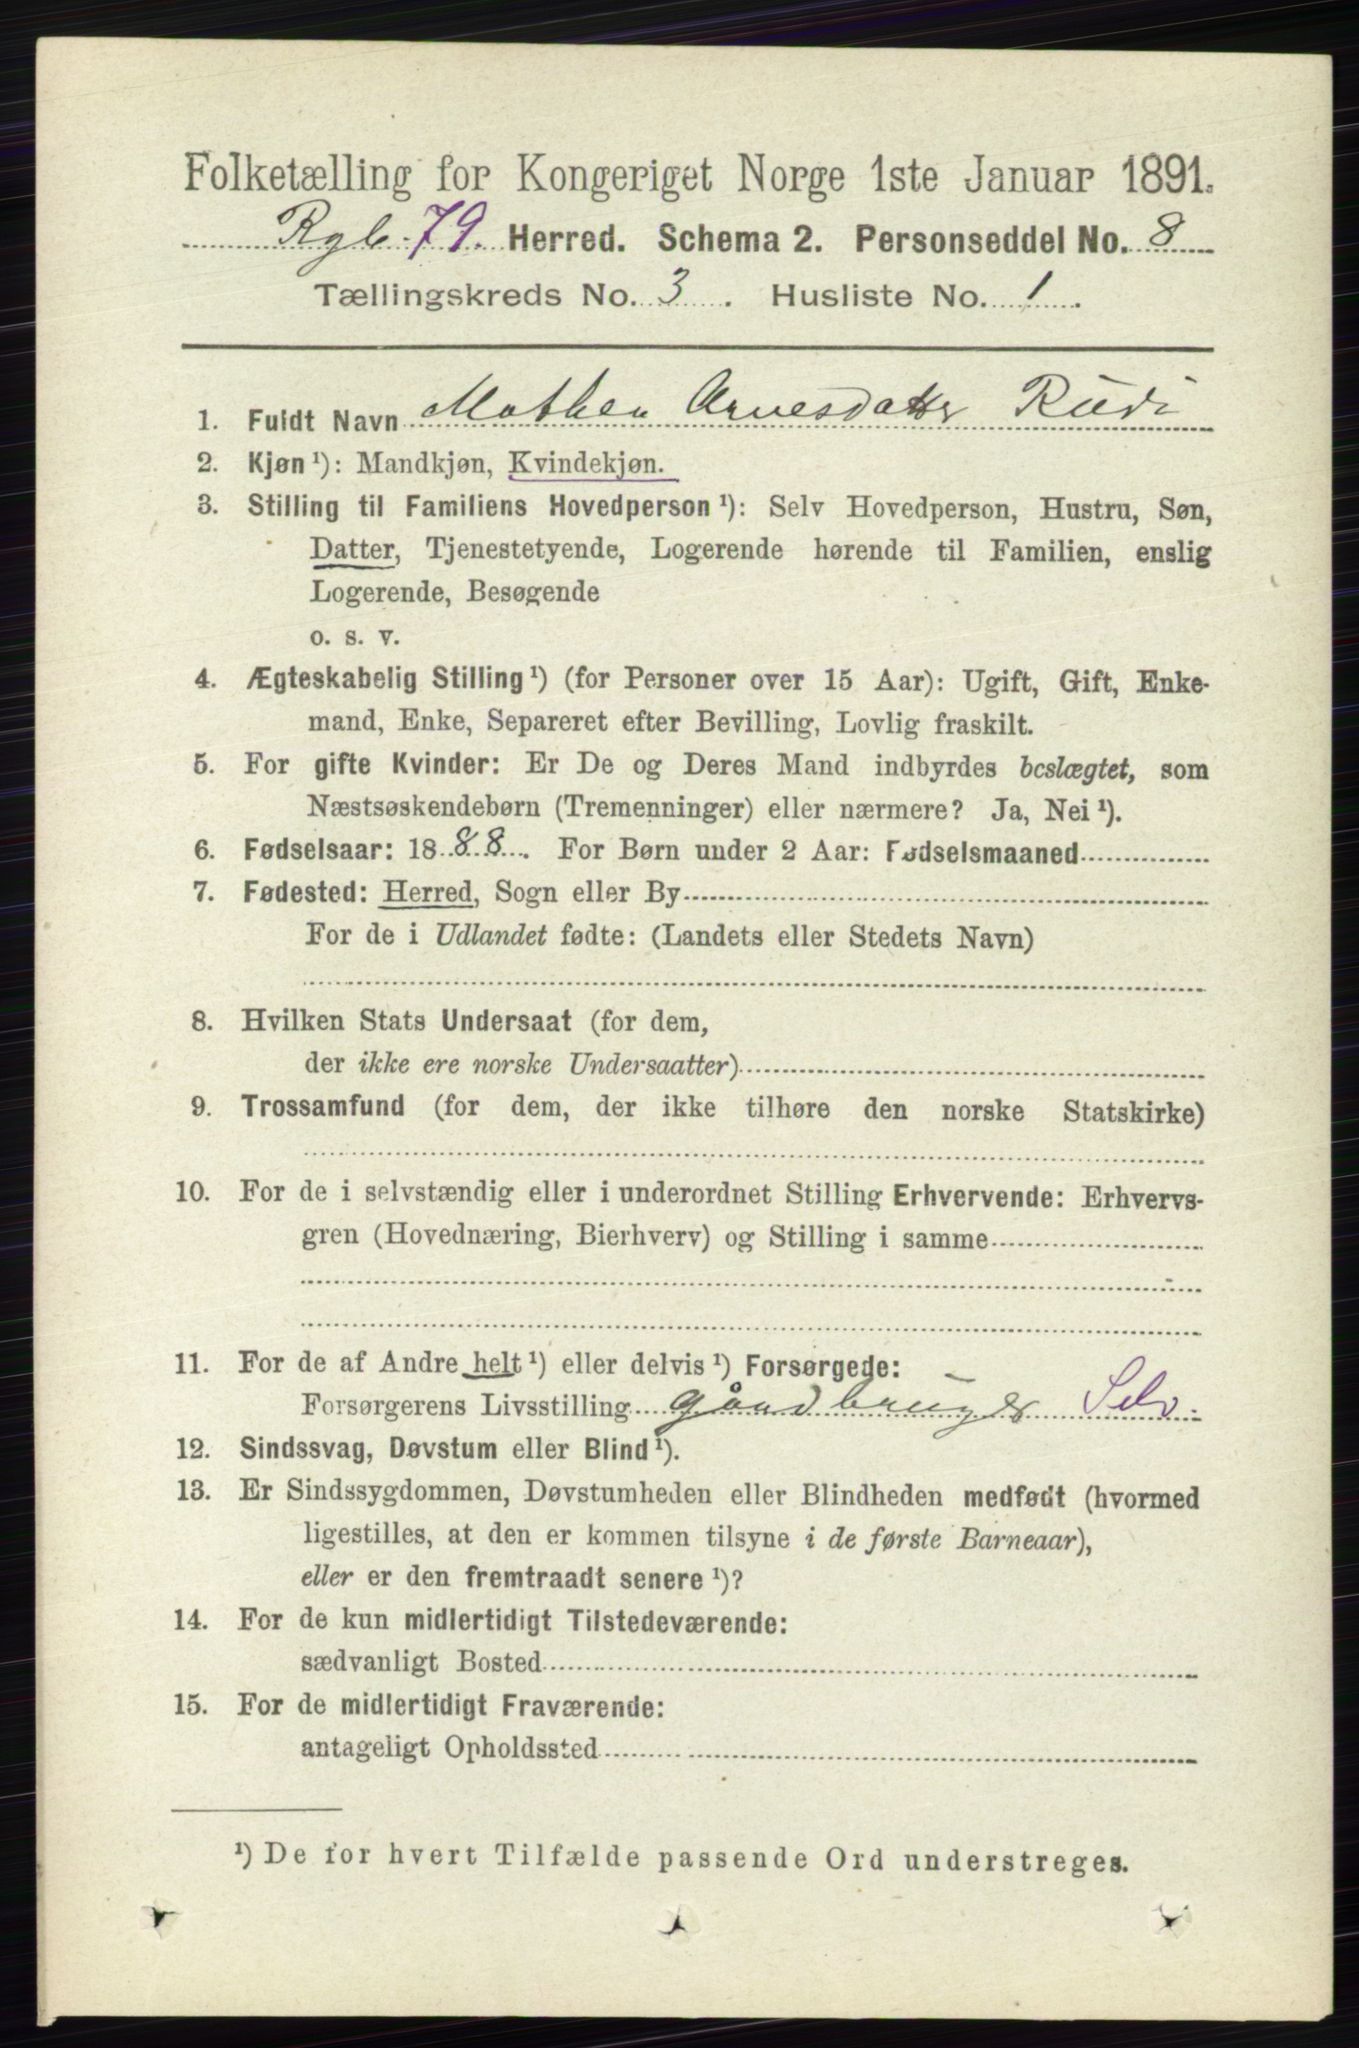 Folketælling for Kongeriget Norge 1ste Januar 1891.
Rgb. 79. Herred. Schema 2. Personseddel No. 8
Tællingskreds No. 3. Husliste No. 1.
1. Fuldt Navn Mathea Arnesdatter Rudi
2. Kjøn ¹): Mandkjøn, Kvindekjøn.
3. Stilling til Familiens Hovedperson ¹): Selv Hovedperson, Hustru, Søn,
Datter, Tjenestetyende, Logerende hørende til Familien, enslig
Logerende, Besøgende
o. s. v.
4. Ægteskabelig Stilling ¹) (for Personer over 15 Aar): Ugift, Gift, Enke-
mand, Enke, Separeret efter Bevilling, Lovlig fraskilt.
5. For gifte Kvinder: Er De og Deres Mand indbyrdes beslægtet, som
Næstsøskendebørn (Tremenninger) eller nærmere? Ja, Nei ¹).
6. Fødselsaar: 1888. For Børn under 2 Aar: Fødselsmaaned
7. Fødested: Herred, Sogn eller By
For de i Udlandet fødte: (Landets eller Stedets Navn)
8. Hvilken Stats Undersaat (for dem,
der ikke ere norske Undersaatter)
9. Trossamfund (for dem, der ikke tilhøre den norske Statskirke)
10. For de i selvstændig eller i underordnet Stilling Erhvervende: Erhvervs-
gren (Hovednæring, Bierhverv) og Stilling i samme
11. For de af Andre helt ¹) eller delvis ¹) Forsørgede:
Forsørgerens Livsstilling gaardbruger Selv.
12. Sindssvag, Døvstum eller Blind ¹).
13. Er Sindssygdommen, Døvstumheden eller Blindheden medfødt (hvormed
ligestilles, at den er kommen tilsyne i de første Barneaar),
eller er den fremtraadt senere ¹)?
14. For de kun midlertidigt Tilstedeværende:
sædvanligt Bosted
15. For de midlertidigt Fraværende:
antageligt Opholdssted
¹) De for hvert Tilfælde passende Ord understreges.